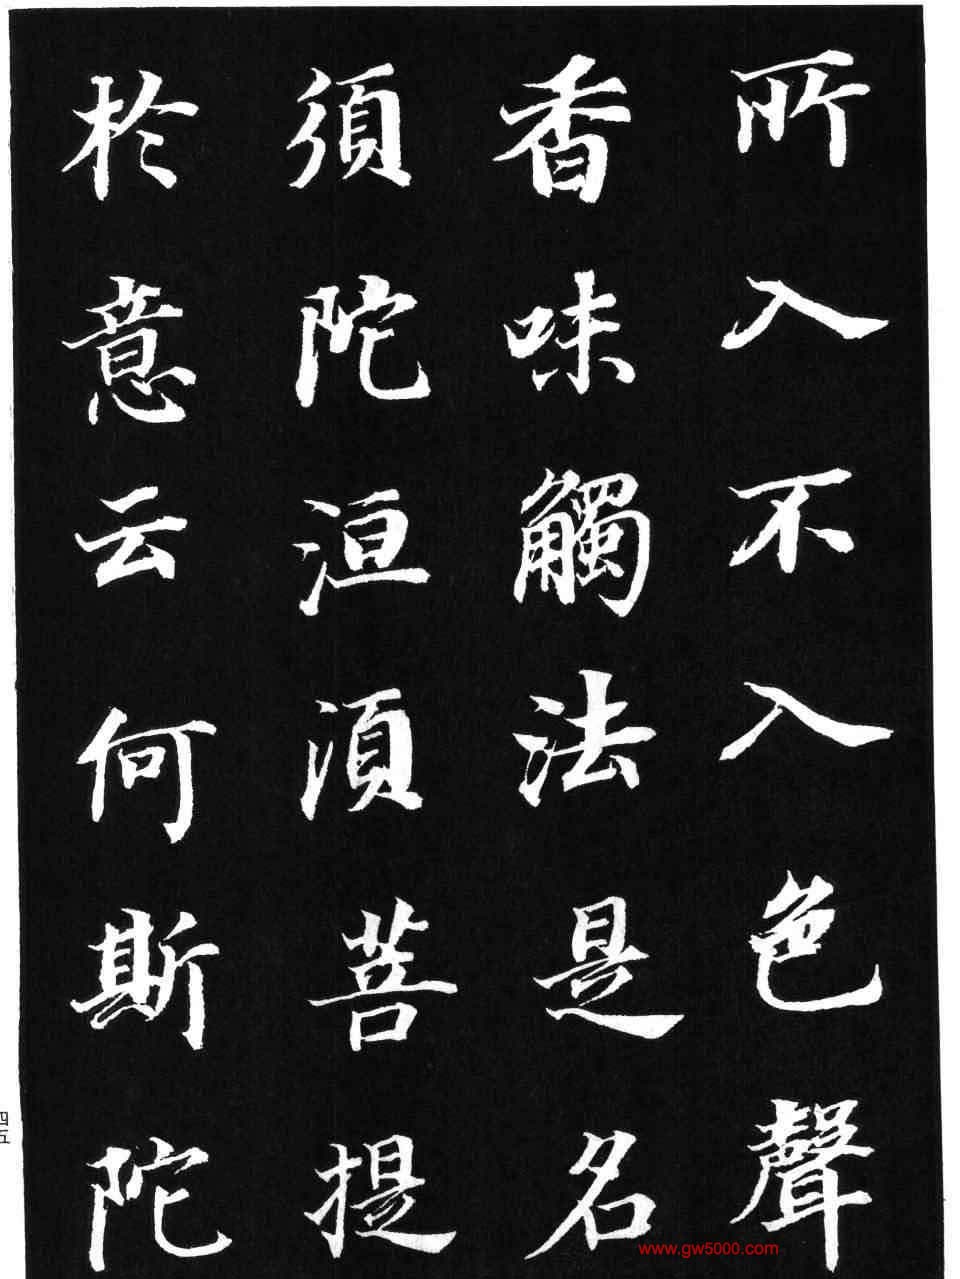 所入不入色聲
香味觸法是名
須陀洹須菩提
於意云何斯陀
四五
www.gw5000.com